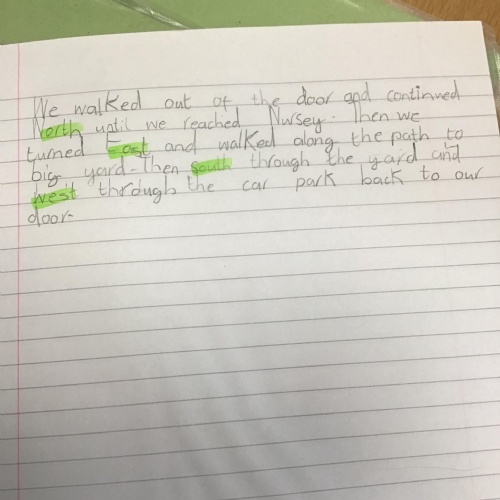 We walked out of the door and continued
North until we reached Nursey. Then we
turned East and walked along the path to
big yard. Then south through the yard and
west through the car park back to our
door.